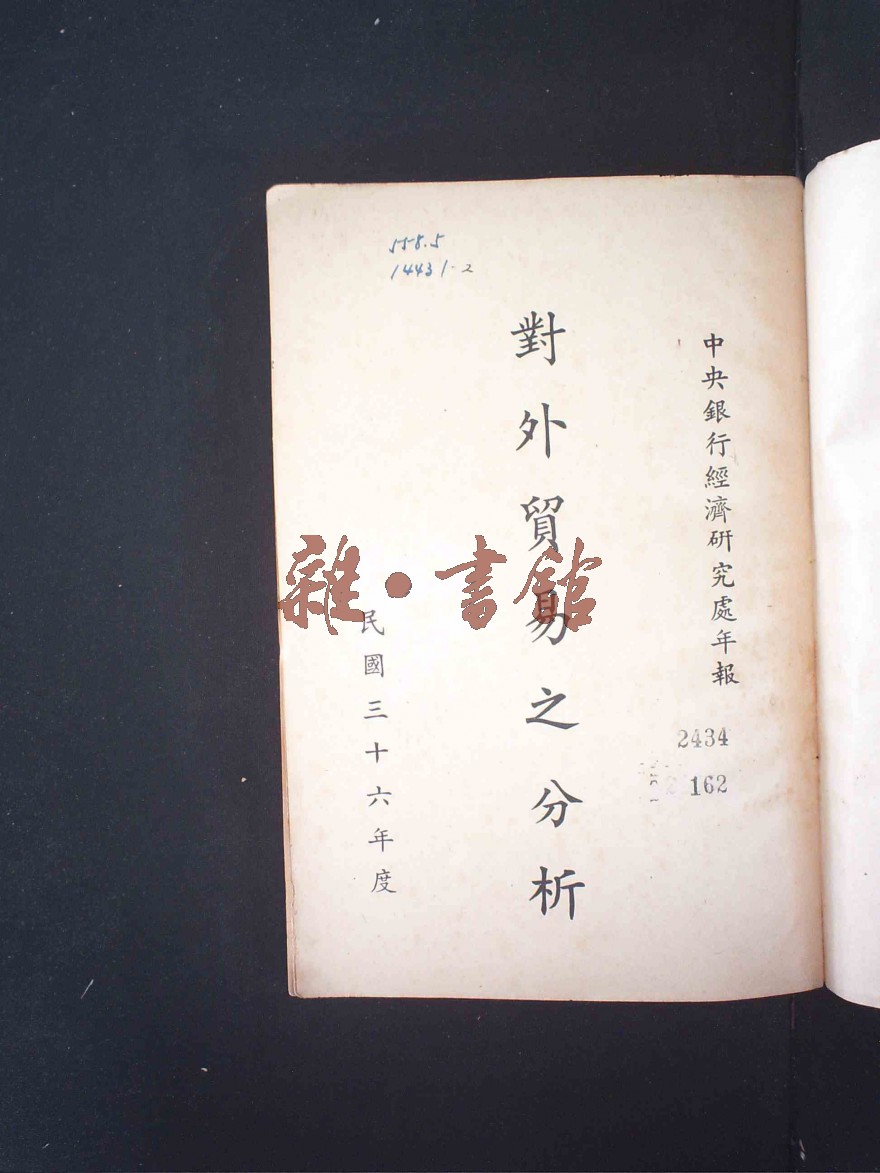 558.5
14431-2
中央銀行經濟研究處年報
2434
162
對外貿易之分析
民國三十六年度
雜·書館